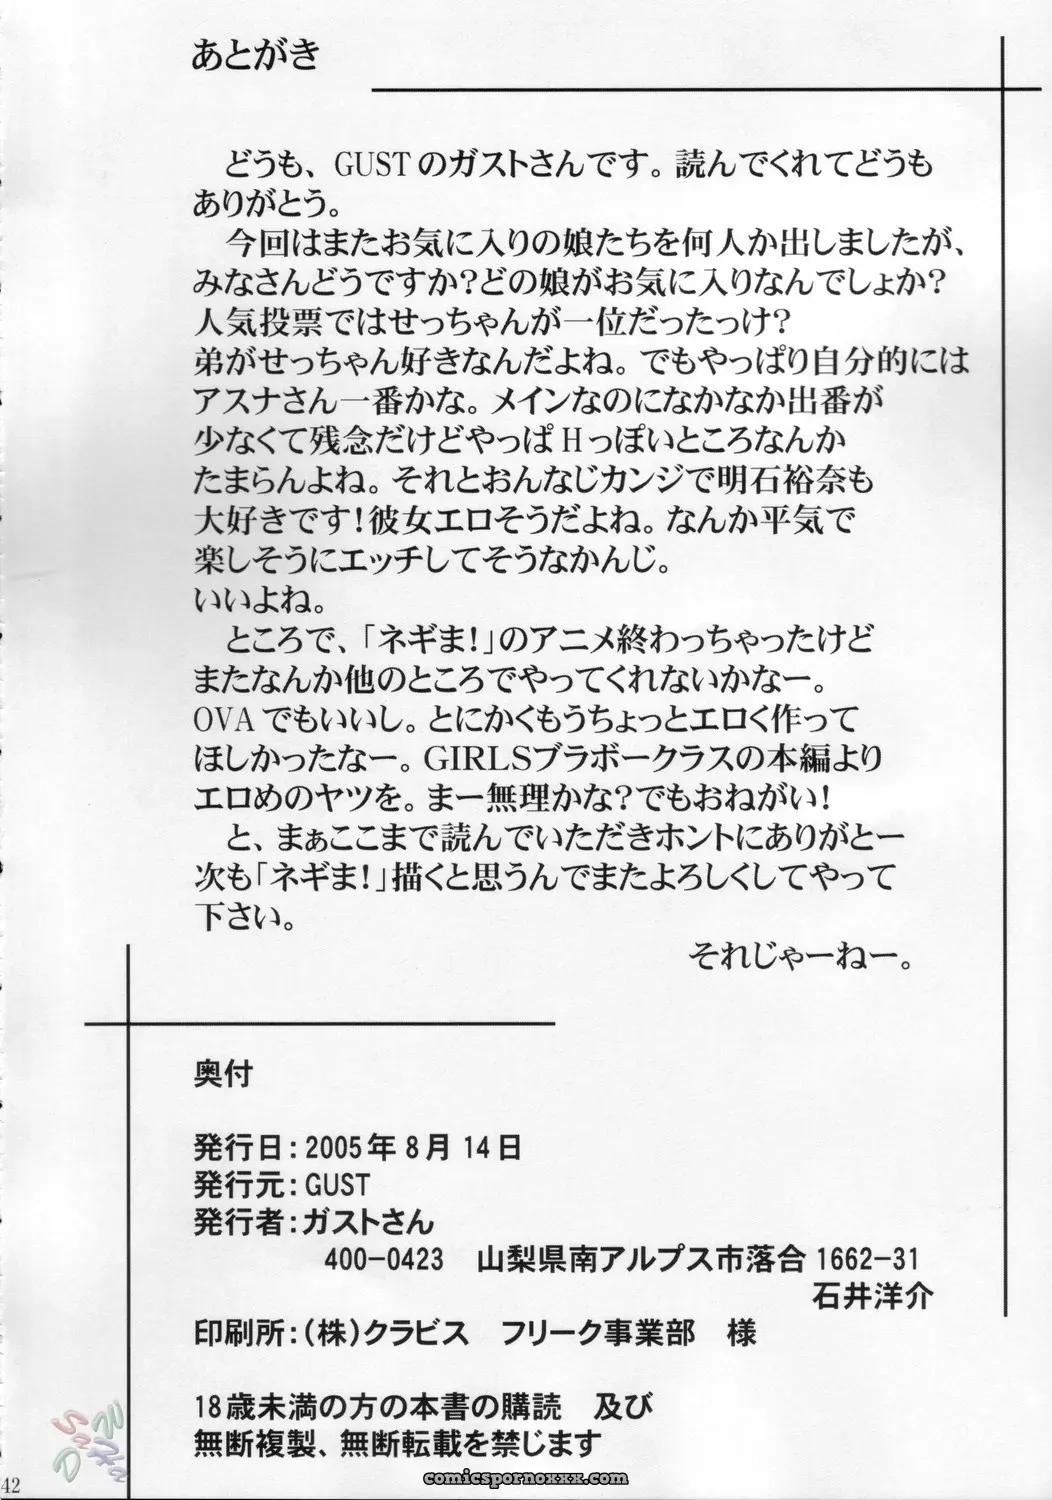 あとがき
どうも、GUSTのガストさんです。読んでくれてどうも
ありがとう。
今回はまたお気に入りの娘たちを何人か出しましたが、
みなさんどうですか？どの娘がお気に入りなんでしょか？
人気投票ではせっちゃんが一位だったっけ？
弟がせっちゃん好きなんだよね。でもやっぱり自分的には
アスナさん一番かな。メインなのになかなか出番が
少なくて残念だけどやっぱHっぽいところなんか
たまらんよね。それとおんなじカンジで明石裕奈も
大好きです！彼女エロそうだよね。なんか平気で
楽しそうにエッチしてそうなかんじ。
いいよね。
ところで、「ネギま！」のアニメ終わっちゃったけど
またなんか他のところでやってくれないかなー。
OVAでもいいし。とにかくもうちょっとエロく作って
ほしかったなー。GIRLSブラボークラスの本編より
エロめのヤツを。まー無理かな？でもおねがい！
と、まぁここまで読んでいただきホントにありがとー
次も「ネギま！」描くと思うんでまたよろしくしてやって
下さい。
それじゃーねー。
奥付
発行日：2005年8月14日
発行元：GUST
発行者：ガストさん
400-0423 山梨県南アルプス市落合1662-31
石井洋介
印刷所：（株）クラビス フリーク事業部 様
18歳未満の方の本書の購読 及び
無断複製、無断転載を禁じます
42
comicspornoxxx.com